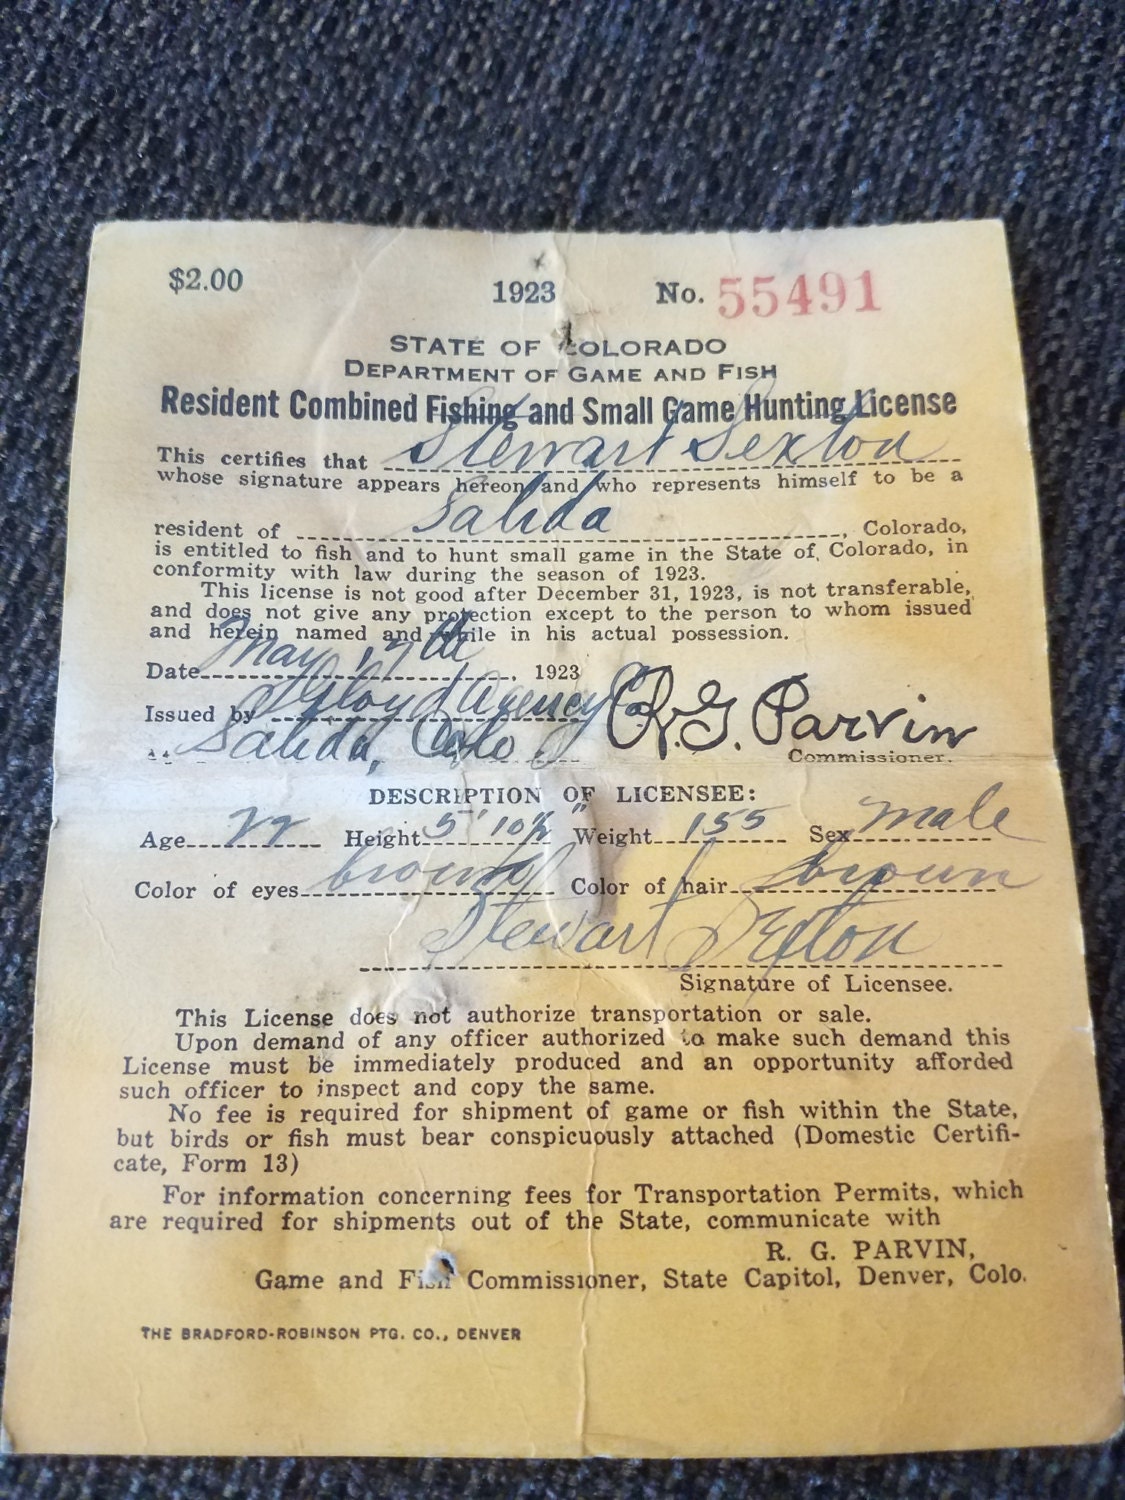 $2.00 1923 No. 55491
STATE OF COLORADO
DEPARTMENT OF GAME AND FISH
Resident Combined Fishing and Small Game Hunting License
This certifies that Stewart Sexton
whose signature appears hereon and who represents himself to be a
resident of Salida, Colorado,
is entitled to fish and to hunt small game in the State of Colorado, in
conformity with law during the season of 1923.
This license is not good after December 31, 1923, is not transferable,
and does not give any protection except to the person to whom issued
and herein named and while in his actual possession.
Date May 17th, 1923
Issued by Lloyd Agency Co. R. G. Parvin
At Salida, Colo. Commissioner.
DESCRIPTION OF LICENSEE:
Age 22 Height 5' 10½" Weight 155 Sex male
Color of eyes brown Color of hair brown
Stewart Sexton
Signature of Licensee.
This License does not authorize transportation or sale.
Upon demand of any officer authorized to make such demand this
License must be immediately produced and an opportunity afforded
such officer to inspect and copy the same.
No fee is required for shipment of game or fish within the State,
but birds or fish must bear conspicuously attached (Domestic Certifi-
cate, Form 13)
For information concerning fees for Transportation Permits, which
are required for shipments out of the State, communicate with
R. G. PARVIN,
Game and Fish Commissioner, State Capitol, Denver, Colo.
THE BRADFORD-ROBINSON PTG. CO., DENVER